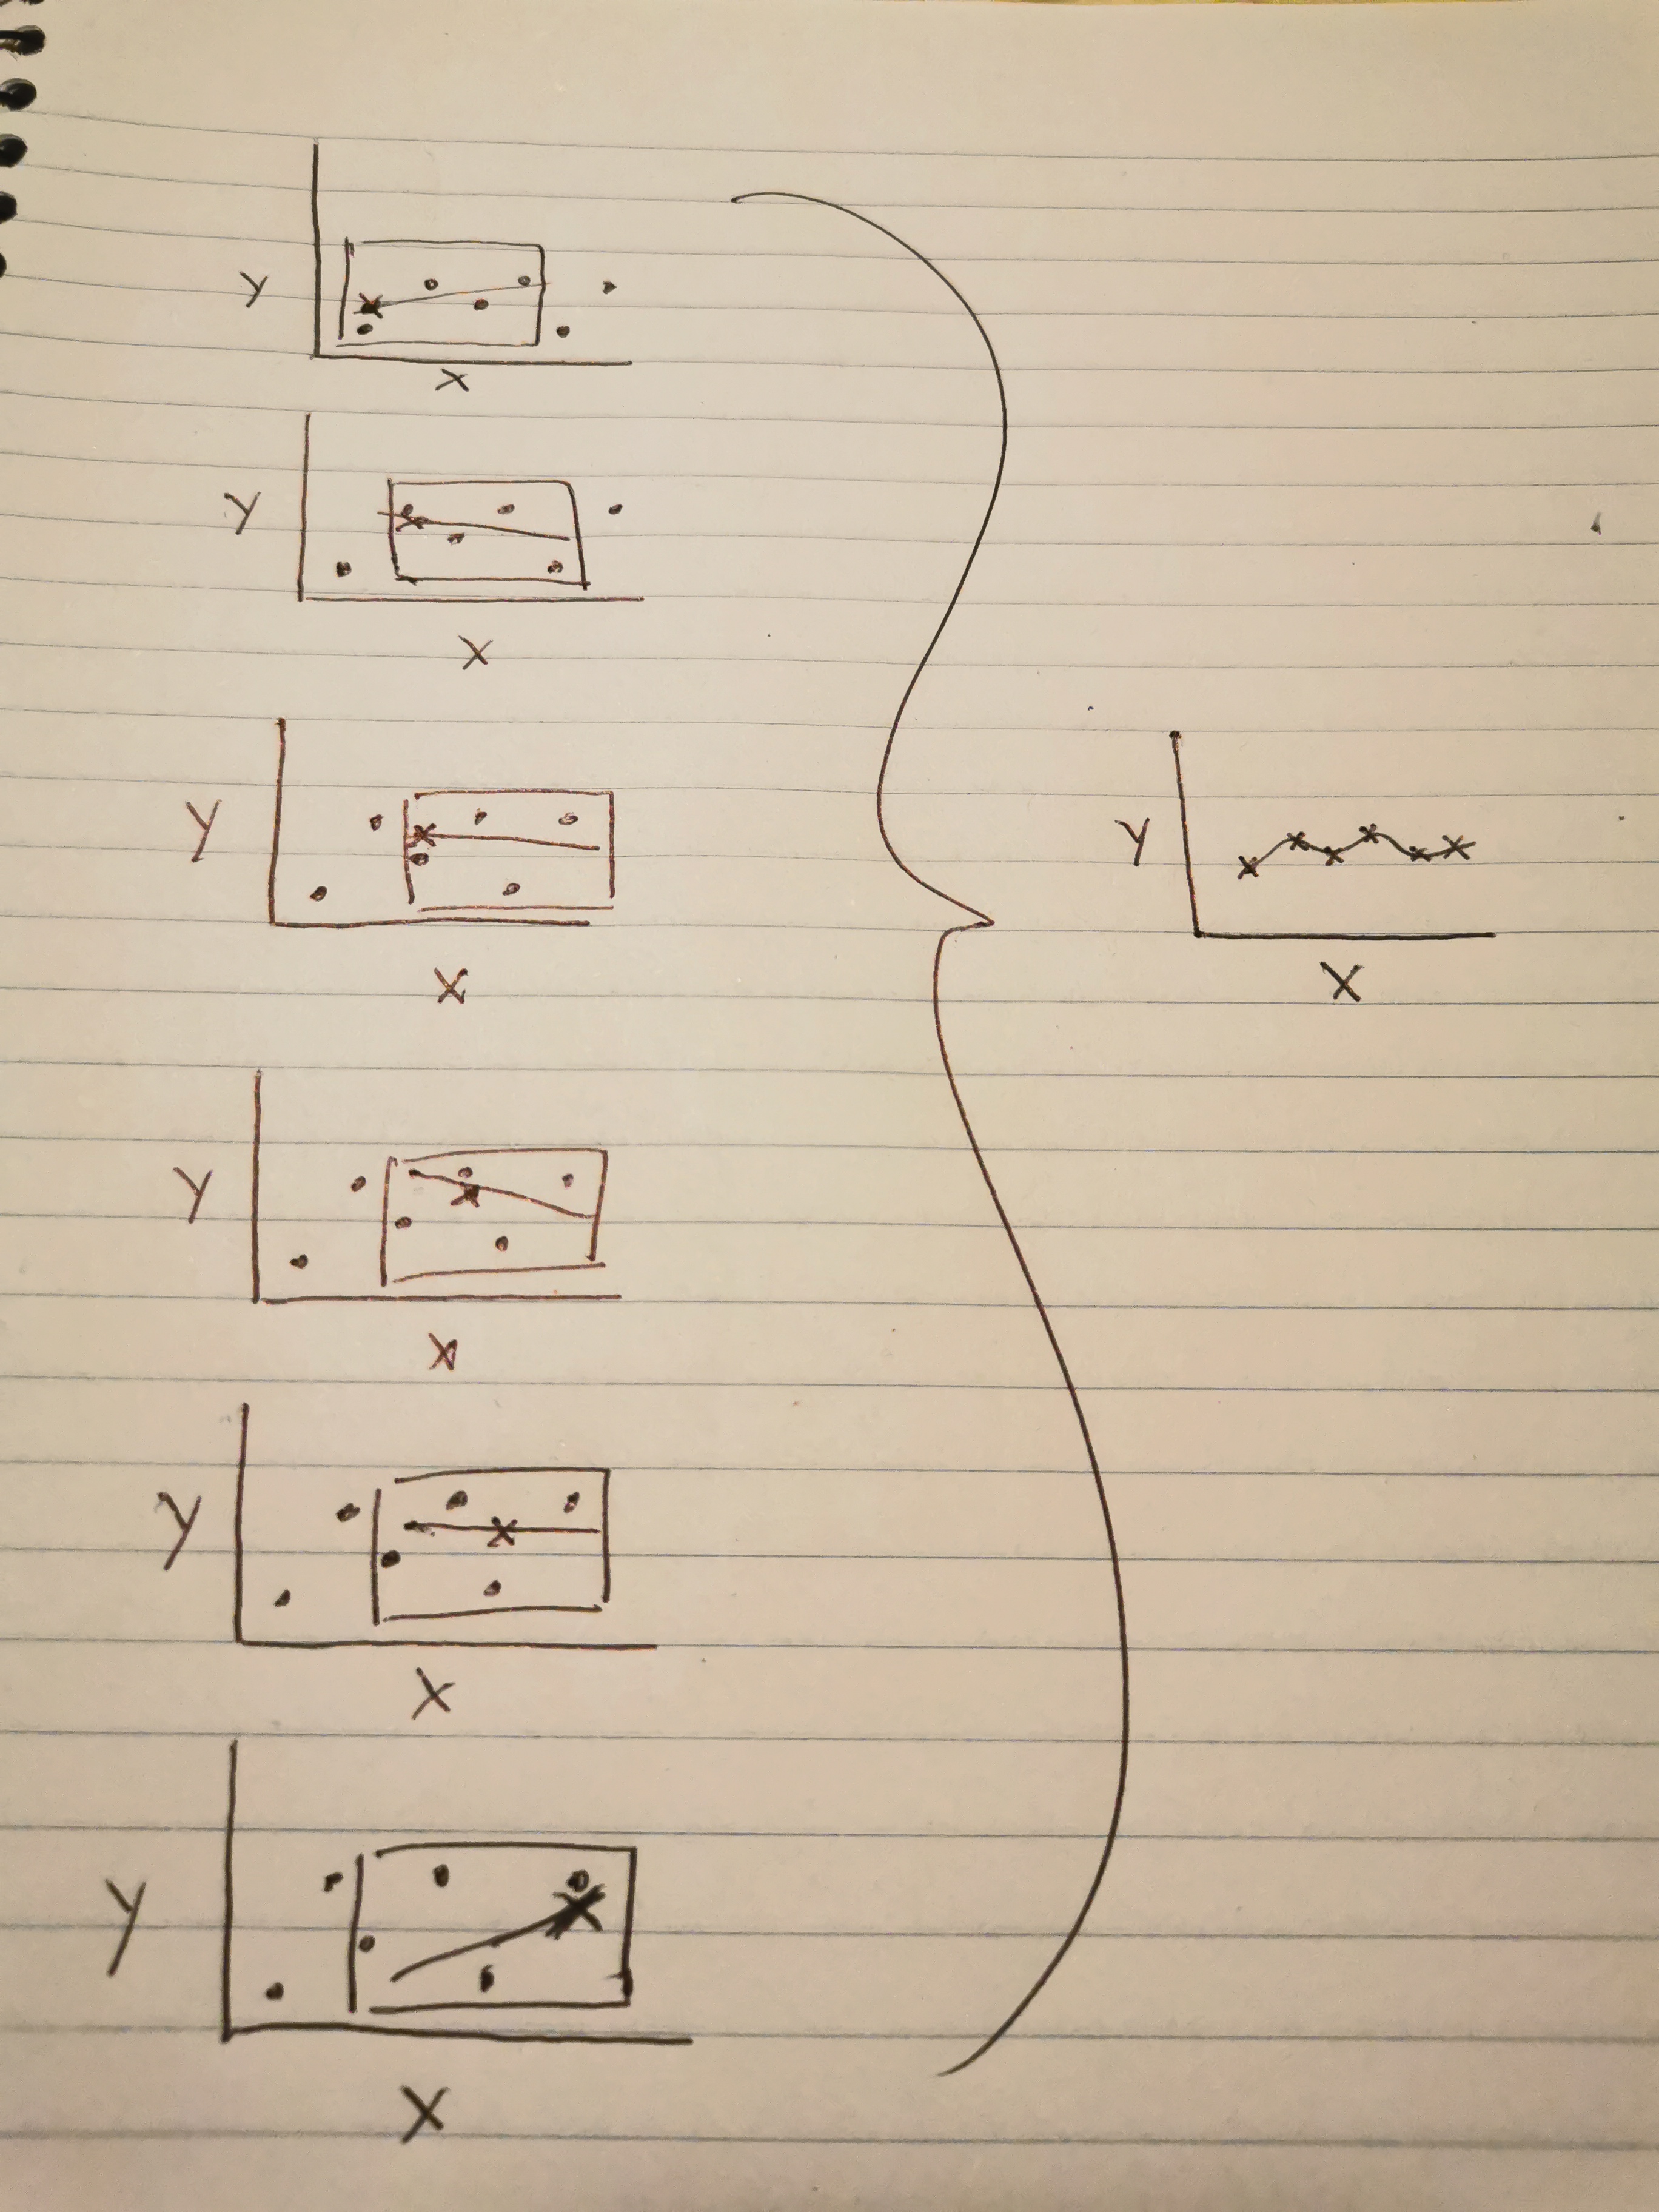 y
x
y
x
y
x
y
x
y
x
y
x
y
x